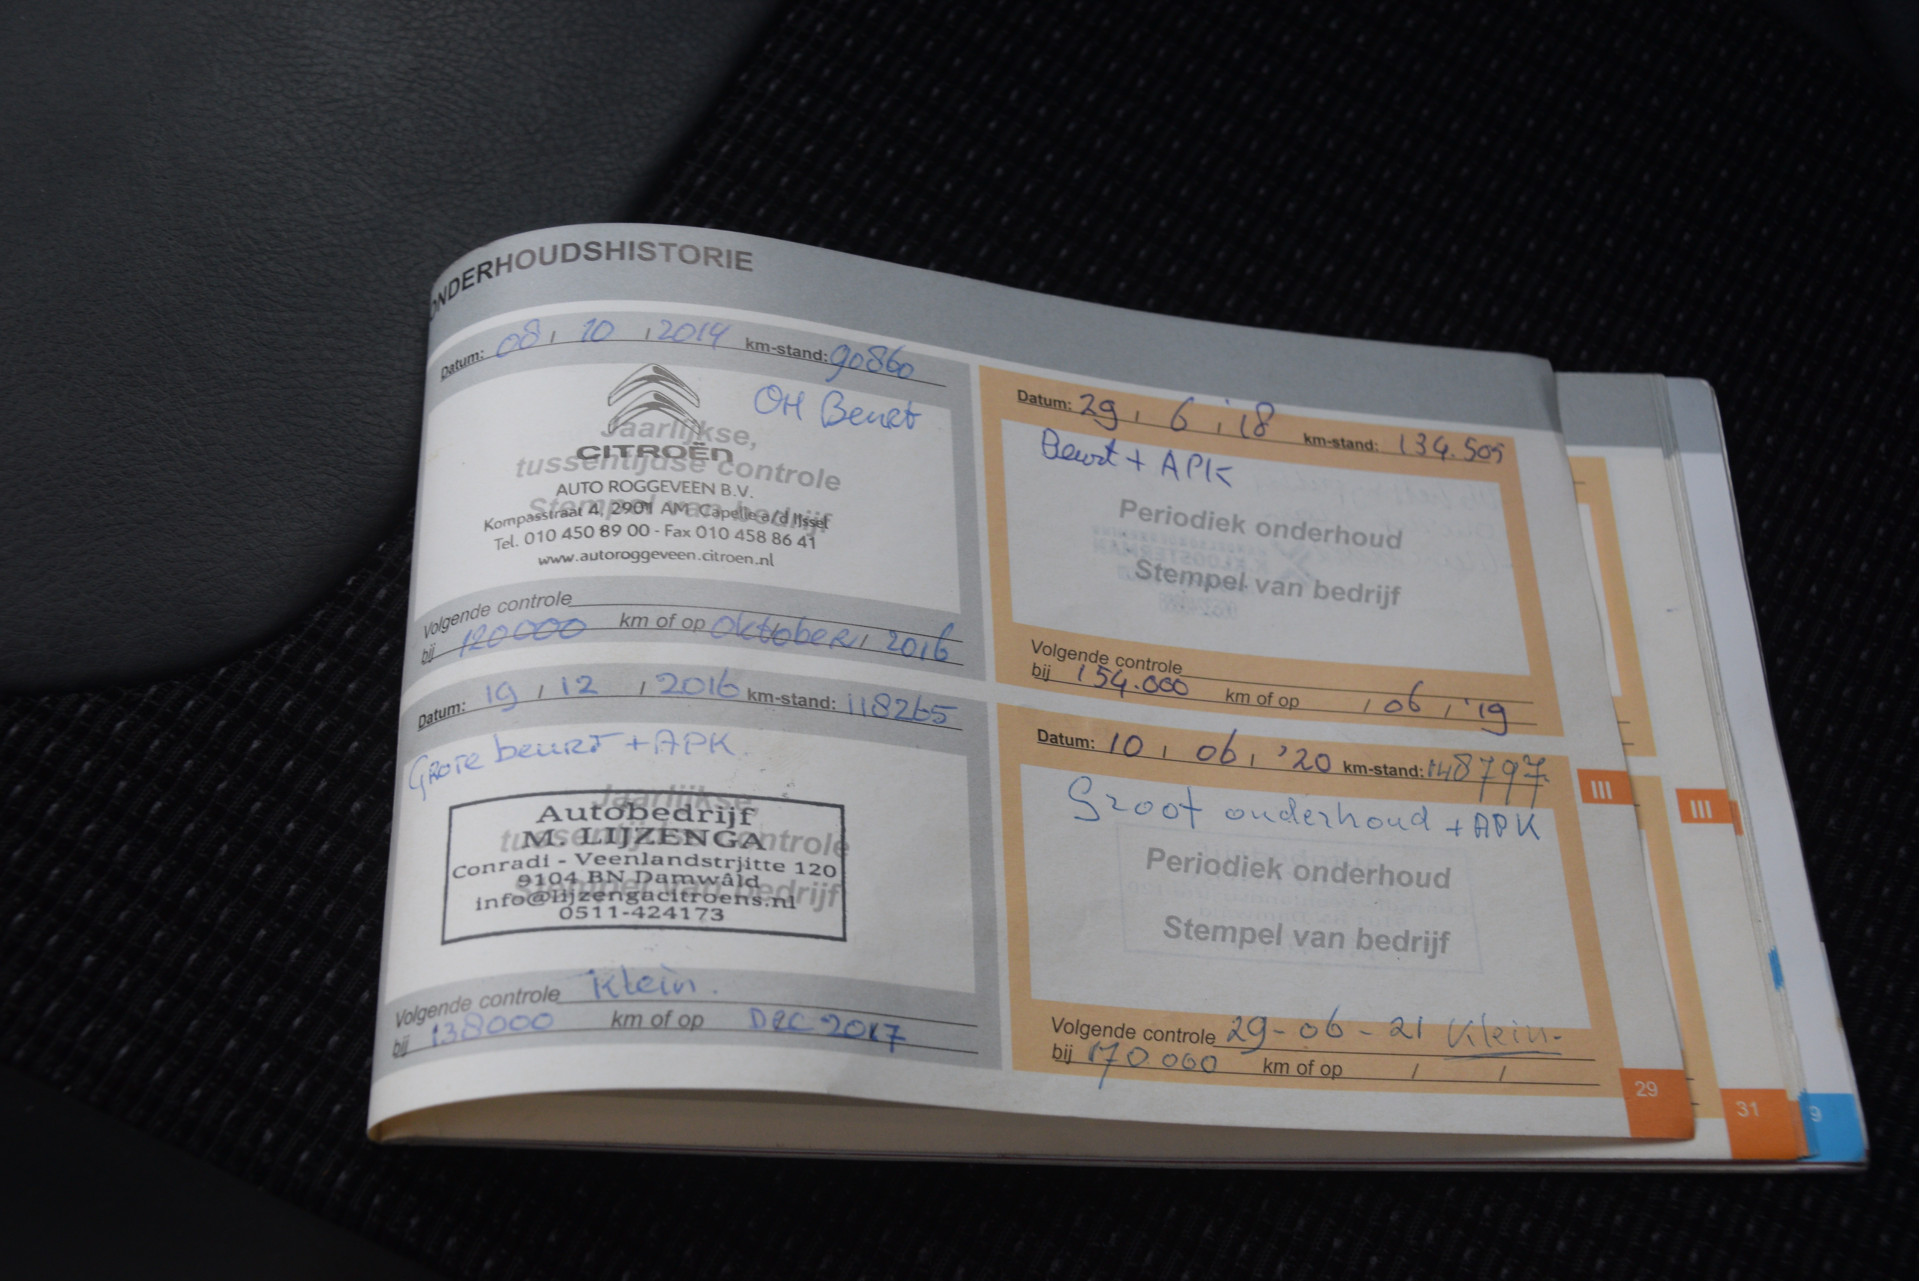 ONDERHOUDSHISTORIE
Datum: 08 / 10 / 2014 km-stand: 90860
OH Beurt
Jaarlijkse,
CITROËN
tussentijdse controle
AUTO ROGGEVEEN B.V.
Stempel van bedrijf
Kompasstraat 4, 2901 AM Capelle a/d IJssel
Tel. 010 450 89 00 - Fax 010 458 86 41
www.autoroggeveen.citroen.nl
Volgende controle
bij 120000 km of op oktober / 2016
Datum: 19 / 12 / 2016 km-stand: 118265
Grote beurt + APK.
Jaarlijkse,
Autobedrijf
tussentijdse controle
M. LIJZENGA
Conradi - Veenlandstrjitte 120
9104 BN Damwâld
Stempel van bedrijf
info@lijzengacitroens.nl
0511-424173
Volgende controle Klein.
bij 138000 km of op Dec 2017
Datum: 29 / 6 / '18 km-stand: 134.505
Beurt + APK
Periodiek onderhoud
Stempel van bedrijf
Volgende controle
bij 154.000 km of op / 06 / '19
Datum: 10 / 06 / '20 km-stand: 148797
Groot onderhoud + APK
Periodiek onderhoud
Stempel van bedrijf
Volgende controle 29-06-21 Klein-
bij 170.000 km of op / /
III
29
III
31
9